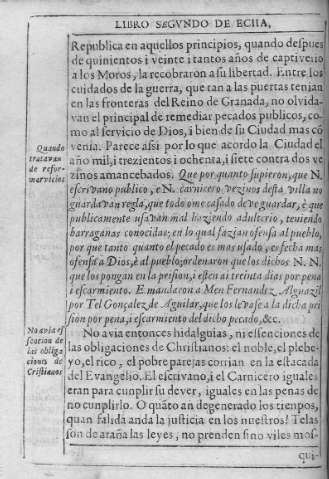 LIBRO SEGVNDO DE ECIIA,
Republica en aquellos principios, quando despues
de quinientos i veinte i tantos años de captiverio
a los Moros, la recobraron a su libertad. Entre los
cuidados de la guerra, que tan a las puertas tenian
en las fronteras del Reino de Granada, no olvida-
van el principal de remediar pecados publicos, co-
mo al servicio de Dios, i bien de su Ciudad mas cō
venia. Parece assi por lo que acordo la Ciudad el
año mil, i trezientos i ochenta, i siete contra dos ve
zinos amancebados. Que por quanto supieron, que N.
escrivano publico, e N. carnicero vezinos desta villa no
guardavan regla, que todo ome casado deve guardar, è que
publicamente usavan mal haziendo adulterio, teniendo
barraganas conocidas; en lo qual fazian ofensa al pueblo,
por que tanto quanto el pecado es mas usado, es fecha mas
ofensa a Dios, è al pueblo; ordenaron que los dichos N. N.
que los pongan en la prision, i esten ai treinta dias por pena
i escarmiento. E mandaron a Men Fernandez Alguazil
por Tel Gonçalez de Aguilar, que los levase a la dicha pri
sion por pena, i escarmiento del dicho pecado, &c.
No avia entonces hidalguias, ni essenciones de
las obligaciones de Christianos: el noble, el plebe-
yo, el rico, el pobre parejas corrian en la estacada
del Evangelio. El escrivano, i el Carnicero iguales
eran para cumplir su dever, iguales en las penas de
no cumplirlo. O quāto an degenerado los tienpos,
quan falida anda la justicia en los nuestros! Telas
son de araña las leyes, no prenden sino viles mos-
qui-
Quando
tratavan
de refor-
mar vicios
No avia es
sencion de
las obliga
ciones de
Cristianos